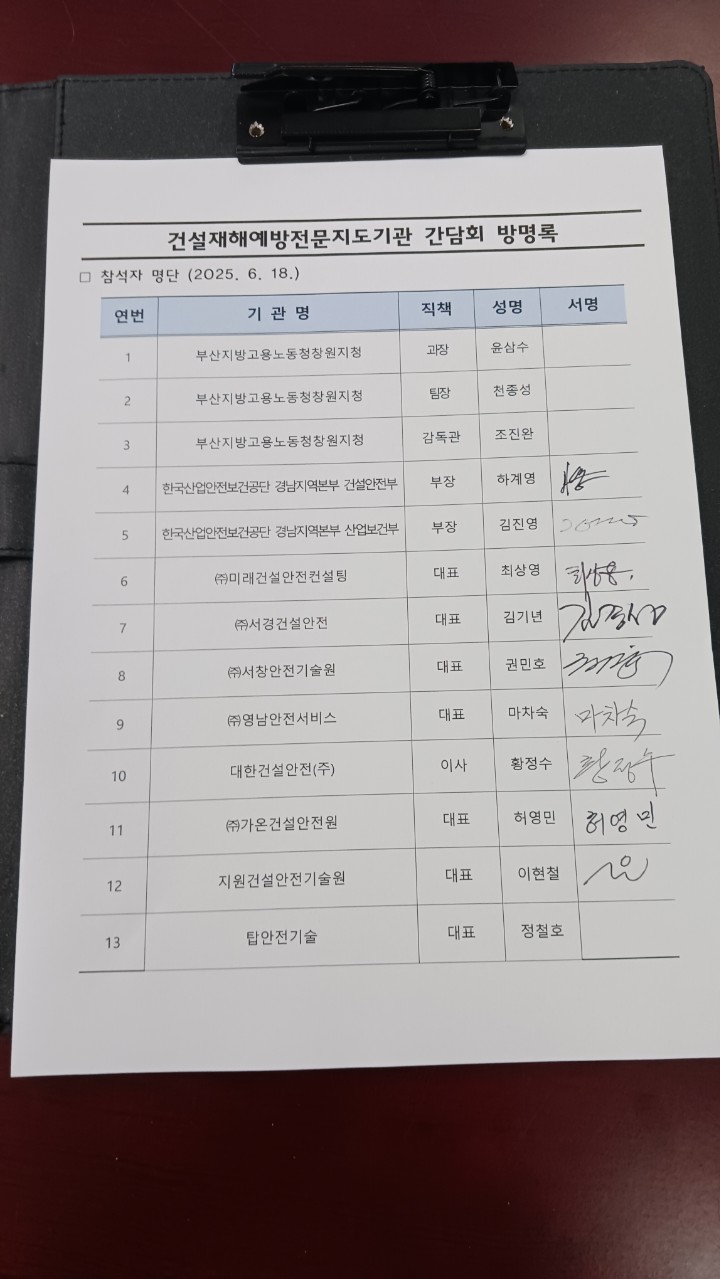 건설재해예방전문지도기관 간담회 방명록
□ 참석자 명단 (2025. 6. 18.)
연번 기 관 명 직책 성명 서명
1 부산지방고용노동청창원지청 과장 윤삼수
2 부산지방고용노동청창원지청 팀장 천종성
3 부산지방고용노동청창원지청 감독관 조진완
4 한국산업안전보건공단 경남지역본부 건설안전부 부장 하계영
5 한국산업안전보건공단 경남지역본부 산업보건부 부장 김진영
6 ㈜미래건설안전컨설팅 대표 최상영
7 ㈜서경건설안전 대표 김기년
8 ㈜서창안전기술원 대표 권민호
9 ㈜영남안전서비스 대표 마차숙 마차숙
10 대한건설안전(주) 이사 황정수 황정수
11 ㈜가온건설안전원 대표 허영민 허영민
12 지원건설안전기술원 대표 이현철
13 탑안전기술 대표 정철호